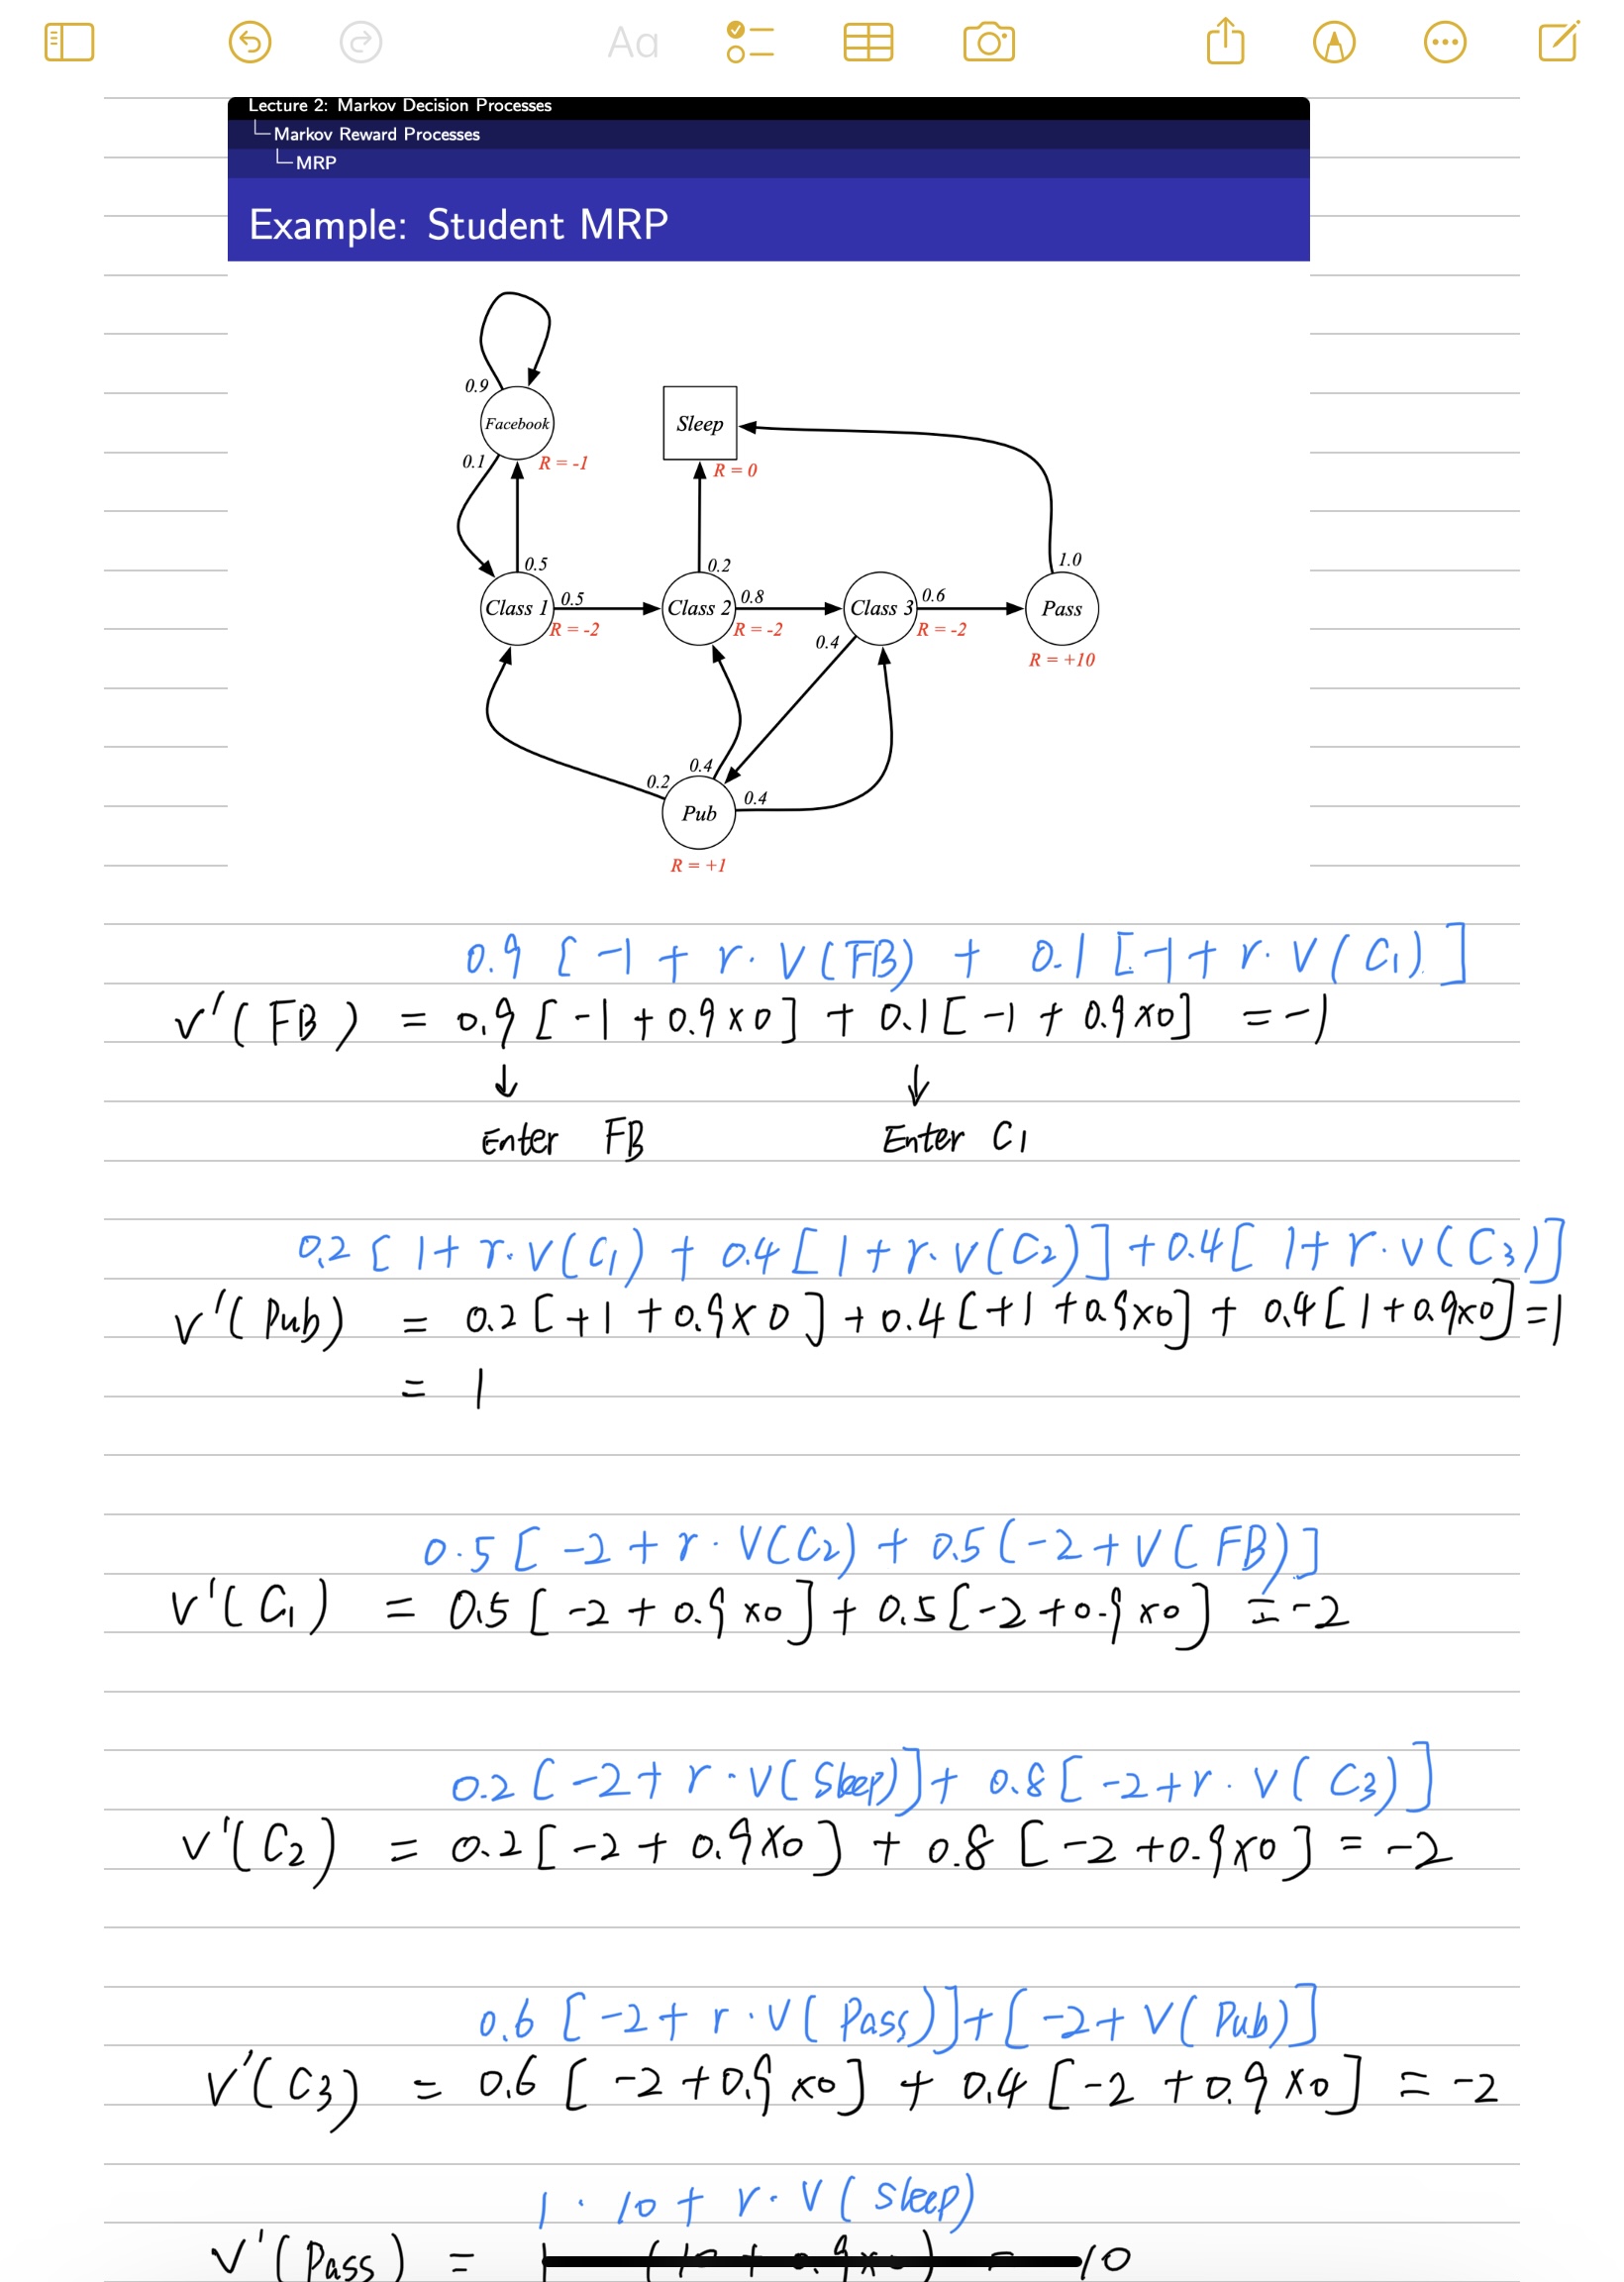 Aa
Lecture 2: Markov Decision Processes
Markov Reward Processes
MRP
Example: Student MRP
0.9
Facebook
Sleep
0.1
R = -1
R = 0
0.5
0.2
1.0
Class 1
0.5
Class 2
0.8
Class 3
0.6
Pass
R = -2
R = -2
R = -2
0.4
R = +10
0.4
0.2
0.4
Pub
R = +1
0.9 [ -1 + r. V(FB) + 0.1 [-1 + r. V(C1) ]
v'(FB) = 0.9 [-1 + 0.9 x 0] + 0.1 [-1 + 0.9 x0] = -1
↓ ↓
Enter FB Enter C1
0.2 [ 1 + r. V(C1) + 0.4 [ 1 + r. v(C2)] + 0.4 [ 1 + r. v(C3)]
v'(Pub) = 0.2 [+1 + 0.9 x 0] + 0.4 [+1 + 0.9x0] + 0.4 [1+0.9x0] = 1
= 1
0.5 [ -2 + r. V(C2) + 0.5 (-2 + V(FB)]
v'(C1) = 0.5 [ -2 + 0.9 x0] + 0.5 [-2 + 0.9 x0] = -2
0.2 [-2 + r. V(Sleep)] + 0.8 [ -2 + r. V(C3)]
v'(C2) = 0.2 [ -2 + 0.9 x0] + 0.8 [ -2 + 0.9 x0] = -2
0.6 [ -2 + r. V(Pass)] + [ -2 + V(Pub)]
v'(C3) = 0.6 [ -2 + 0.9 x0] + 0.4 [-2 + 0.9 x0] = -2
1 . 10 + r. V(Sleep)
v'(Pass) = 10